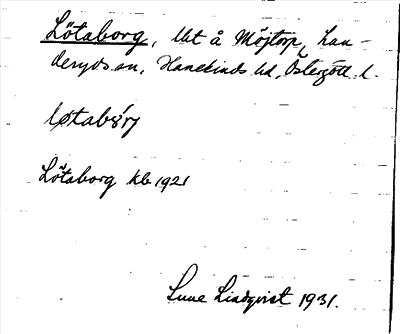 Lötaborg, lht å Möjtorp, Lan-
deryds sn, Hanekinds hd, Östergötl. l.
løtabǒrj
Lötaborg kb 1921
Sune Lindqvist 1931.